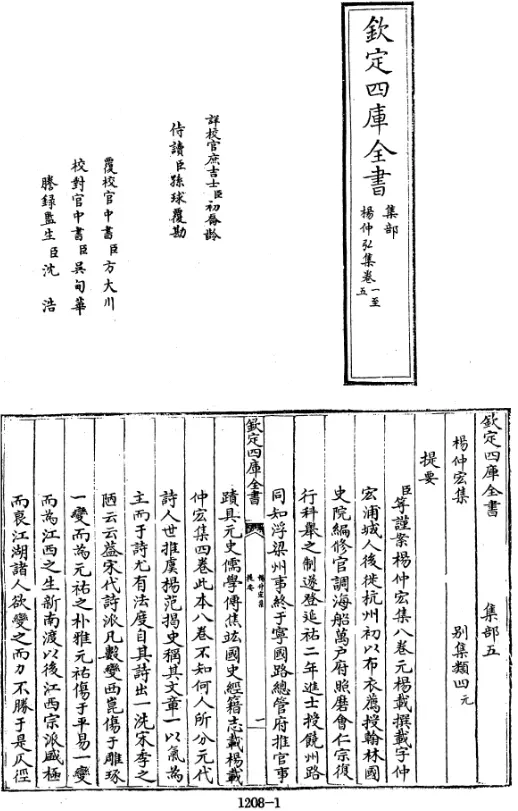 欽定四庫全書
集部
楊仲弘集卷一至五
詳校官庶吉士臣初喬齡
侍讀臣孫球覆勘
覆校官中書臣方大川
校對官中書臣吳旬華
謄錄監生臣沈浩
欽定四庫全書 集部五
楊仲宏集 別集類四元
提要
臣等謹案楊仲宏集八卷元楊載撰載字仲
宏浦城人後徙杭州初以布衣薦授翰林國
史院編修官調海船萬户府照磨會仁宗復
行科舉之制遂登延祐二年進士授饒州路
同知浮梁州事終于寧國路總管府推官事
欽定四庫全書 楊仲宏集 提要 一
蹟具元史儒學傳焦竑國史經籍志載楊載
仲宏集四卷此本八卷不知何人所分元代
詩人世推虞楊范揭史稱其文章一以氣為
主而于詩尤有法度自其詩出一洗宋季之
陋云云葢宋代詩派凡數變西崑傷于雕琢
一變而為元祐之朴雅元祐傷于平易一變
而為江西之生新南渡以後江西宗派盛極
而衰江湖諸人欲變之而力不勝于是仄徑
1208-1